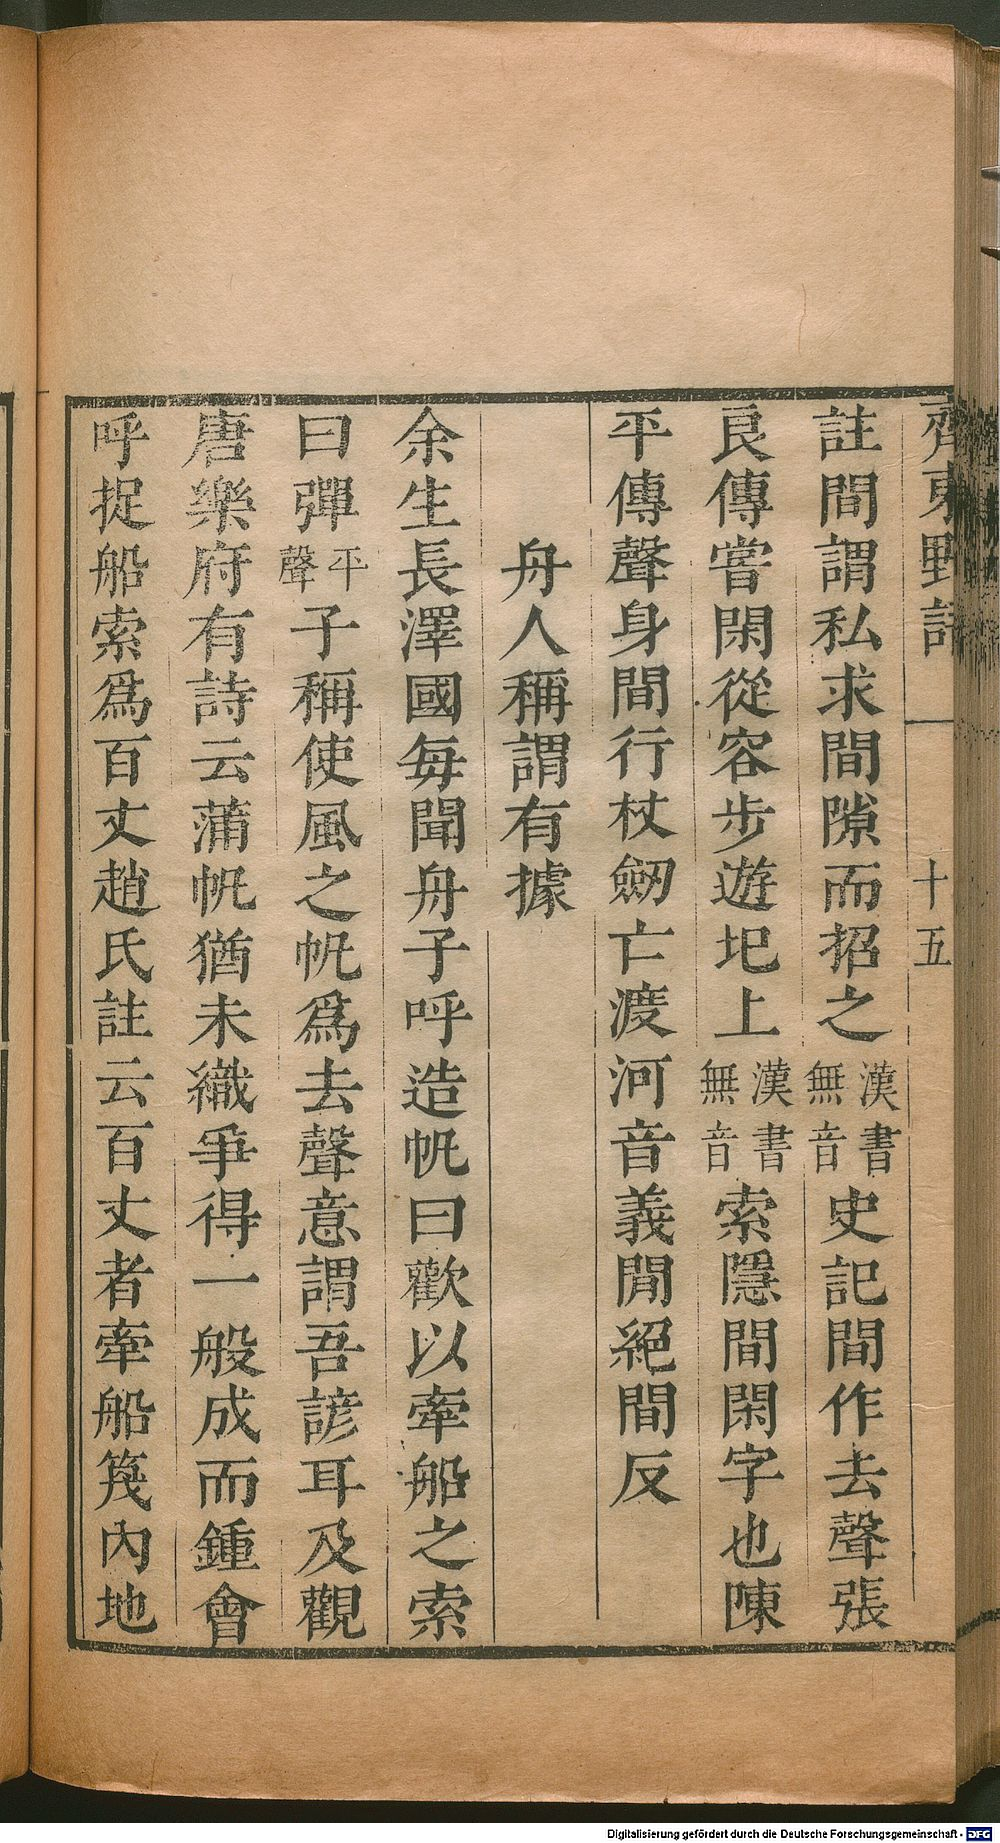 齊東野語 十五
註間謂私求間隙而招之漢書無音史記間作去聲張
良傳嘗閑從容步遊圯上漢書無音索隱間閑字也陳
平傳聲身間行杖劒亡渡河音義閒絕間反
舟人稱謂有據
余生長澤國每聞舟子呼造帆曰歡以牽船之索
曰彈平聲子稱使風之帆爲去聲意謂吾諺耳及觀
唐樂府有詩云蒲帆猶未織爭得一般成而鍾會
呼捉船索爲百丈趙氏註云百丈者牽船筏內地
Digitalisierung gefördert durch die Deutsche Forschungsgemeinschaft - DFG